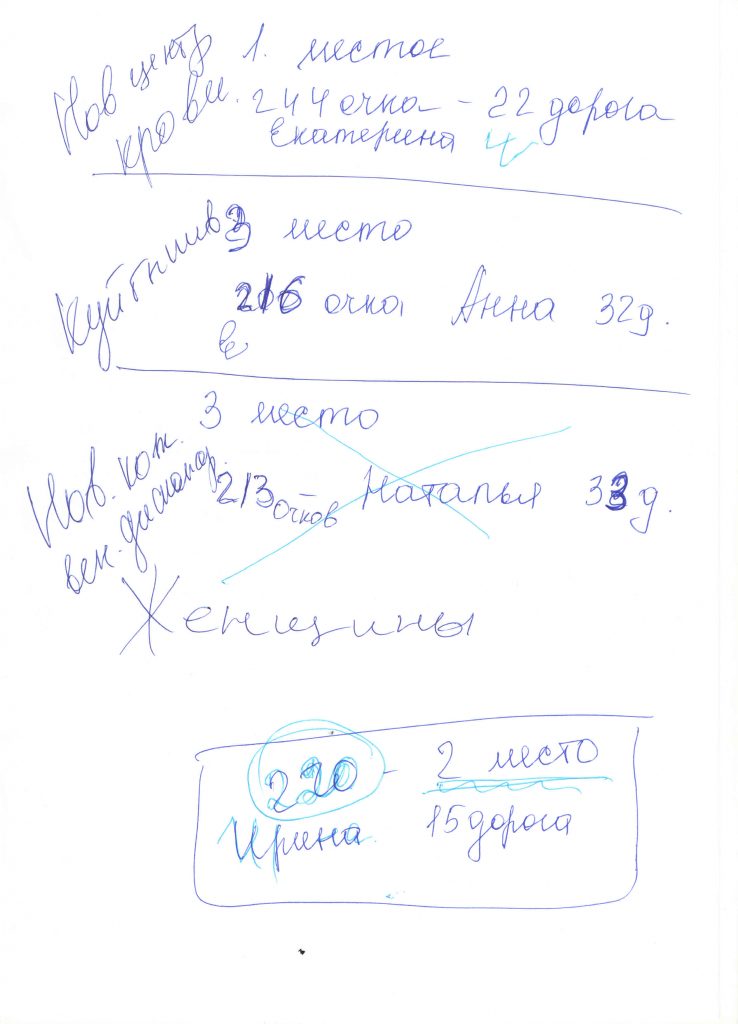 Нов центр
крови.
1. местое
244 очка - 22 дорога
Екатерина
3 место
216 очка Анна 32д.
3 место
Нов. кож.
вен. диспансер.
213 очков Наталья 33д.
Женщины
220 - 2 место
Ирина 15 дорога